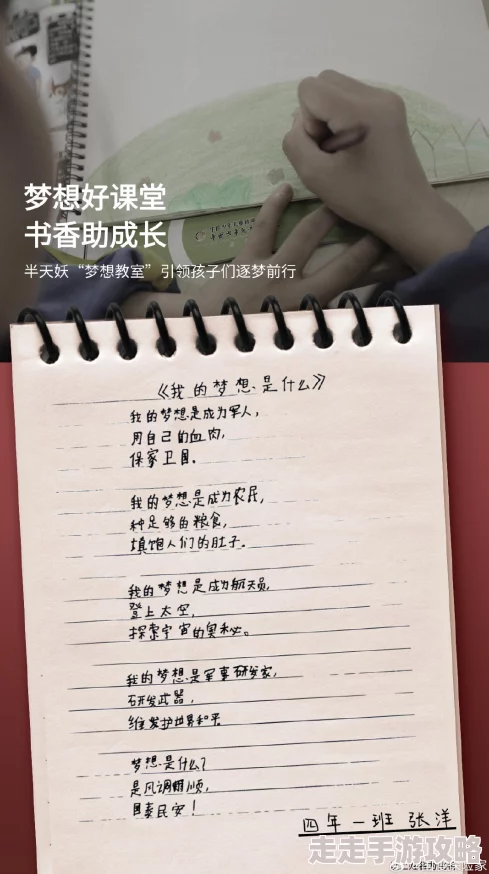 梦想好课堂
书香助成长
半天妖“梦想教室”引领孩子们逐梦前行
《我的梦想是什么》
我的梦想是成为军人，
用自己的血肉，
保家卫国。
我的梦想是成为农民，
种足够的粮食，
填饱人们的肚子。
我的梦想是成为航天员，
登上太空，
探索宇宙的奥秘。
我的梦想是军事研发家，
研发武器，
维护世界和平
梦想是什么？
是风调雨顺，
国泰民安！
四年一班 张洋
走走手游攻略